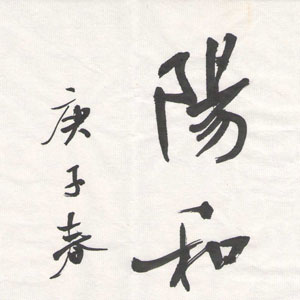 陽和
庚子春